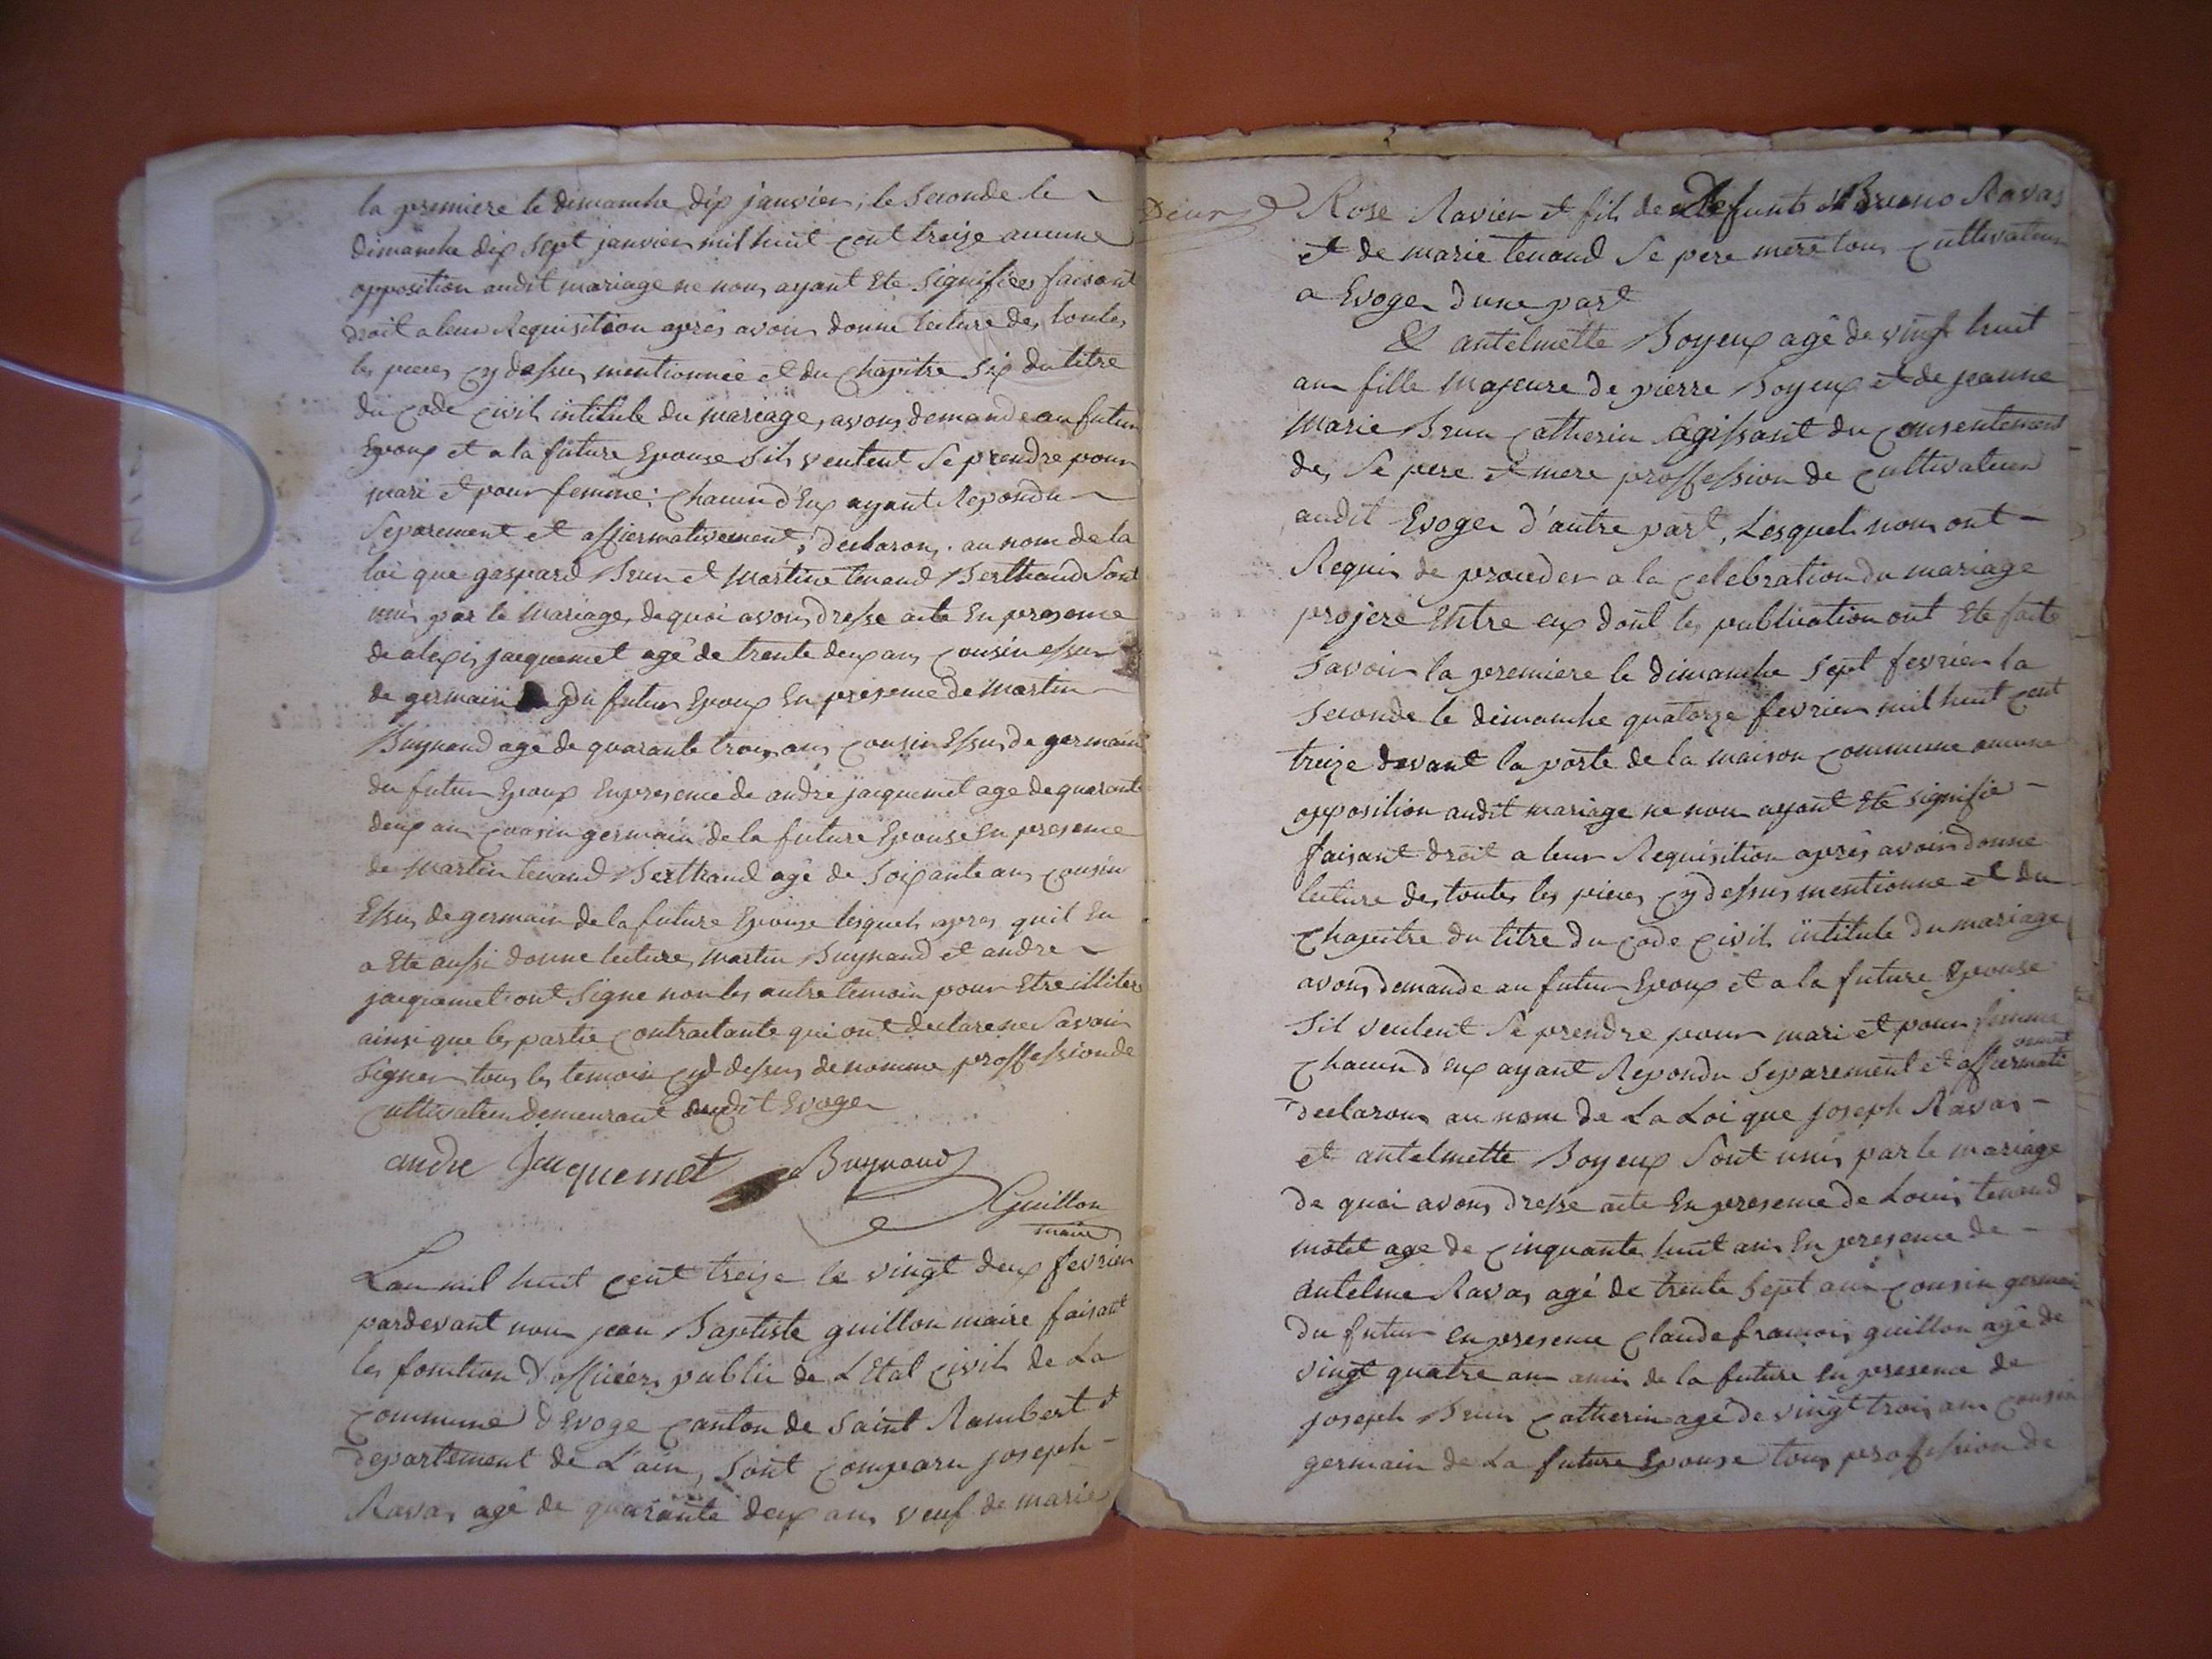 la premiere le dimanche dix janvier, le seconde le
dimanche dix sept janvier mil huit cent treize aucune
opposition audit mariage ne nous ayant ete signifiées faisant
droit a leur Requisition aprés avoir donne lecture des toutes
les pieces cy dessus mentionneé et du chapitre six du titre
du code civil intitule du mariage, avons demande au futur
Epoux et a la future Epouse sils veulent se prendre pour
mari et pour femme; chacun d'Eux ayant Repondu
separement et affiermativement, declarons. au nom de la
loi que gaspard Brun et Martine tenand Berthaud sont
unis par le Mariage, de quoi avons dresse acte En presence
de alexis jacquemet agé de trente deux ans cousin essus
de germain du futur Epoux En presence de Martin
Buynand agé de quarante trois ans cousin Essus de germain
du futur Epoux En presence de andre jacquemet age de quarante
deux ans cousin germain de la future Epouse En presence
de Martin tenand Berthaud agé de soixante ans cousin
Essus de germain de la future Epouse lesquels apres quil En
a Ete aussi donne lecture, martin Buynand et andre
jacquemet ont signe non les autre temoin pour Etre illitere
ainsi que les partie contractante qui ont declare ne savoir
signer tous les temoin cy dessus denomme proffession de
cultivateur demeurant audit Evoge
andre Jacquemet Buynand
Guillon
maire
L'an mil huit cent treize le vingt deux fevrier
pardevant nous jean Baptiste guillon maire faisant
les fonction d'officiers public de L'Etat civil de La
commune d'Evoge canton de Saint Rambert
departement de L'ain, sont comparu joseph
Ravas agé de quarante deux ans veuf de marie
Rose Ravier et fils de Defunts Bruno Ravas
et de marie tenand se pere mere tous cultivateur
a Evoges d'une part
& antelmette Boyeux agé de vingt huit
ans fille majeure de pierre Boyeux et de jeanne
Marie Brun catherin agissant du consentement
des se pere et mere proffession de cultivateur
audit Evoges d'autre part, Lesquels nous ont
Requis de proceder a la celebration du mariage
projere Entre eux dont les publication ont Ete faite
savoir la premiere le dimanche sept fevrier la
seconde le dimanche quatorze fevrier mil huit cent
treize devant la porte de la maison commune aucune
opposition audit mariage ne nous ayant Eté signifie
faisant droit a leur Requisition aprés avoir donne
lecture des toutes les pieces cy dessus mentionne et du
chapitre du titre du code civil intitule du mariage
avons demande au futur Epoux et a la future Epouse
sil veulent se prendre pour mari et pour femme
chacun d'eux ayant Repondu separement et affiermati
vement
declarons au nom de La Loi que joseph Ravas
et antelmette Boyeux sont unis par le mariage
de quoi avons dresse acte En presence de Louis tenand
motet age de cinquante huit ans En presence de
antelme Ravas agé de trente sept ans cousin germain
du futur en presence claude francois guillon agé de
vingt quatre ans amis de la future en presence de
joseph Brun catherin agé de vingt trois ans cousin
germain de La future Epouse tous proffession de